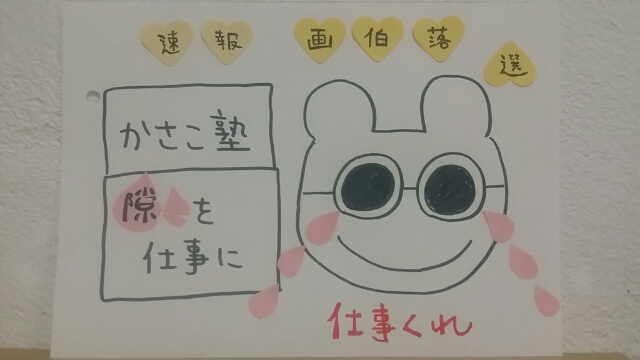 速報 画伯落選
かさこ塾
隙を
仕事に
仕事くれ